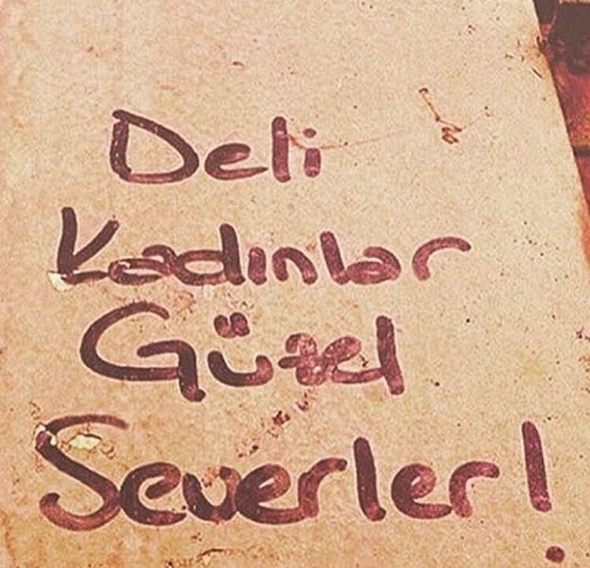 Deli
Kadınlar
Güzel
Severler!